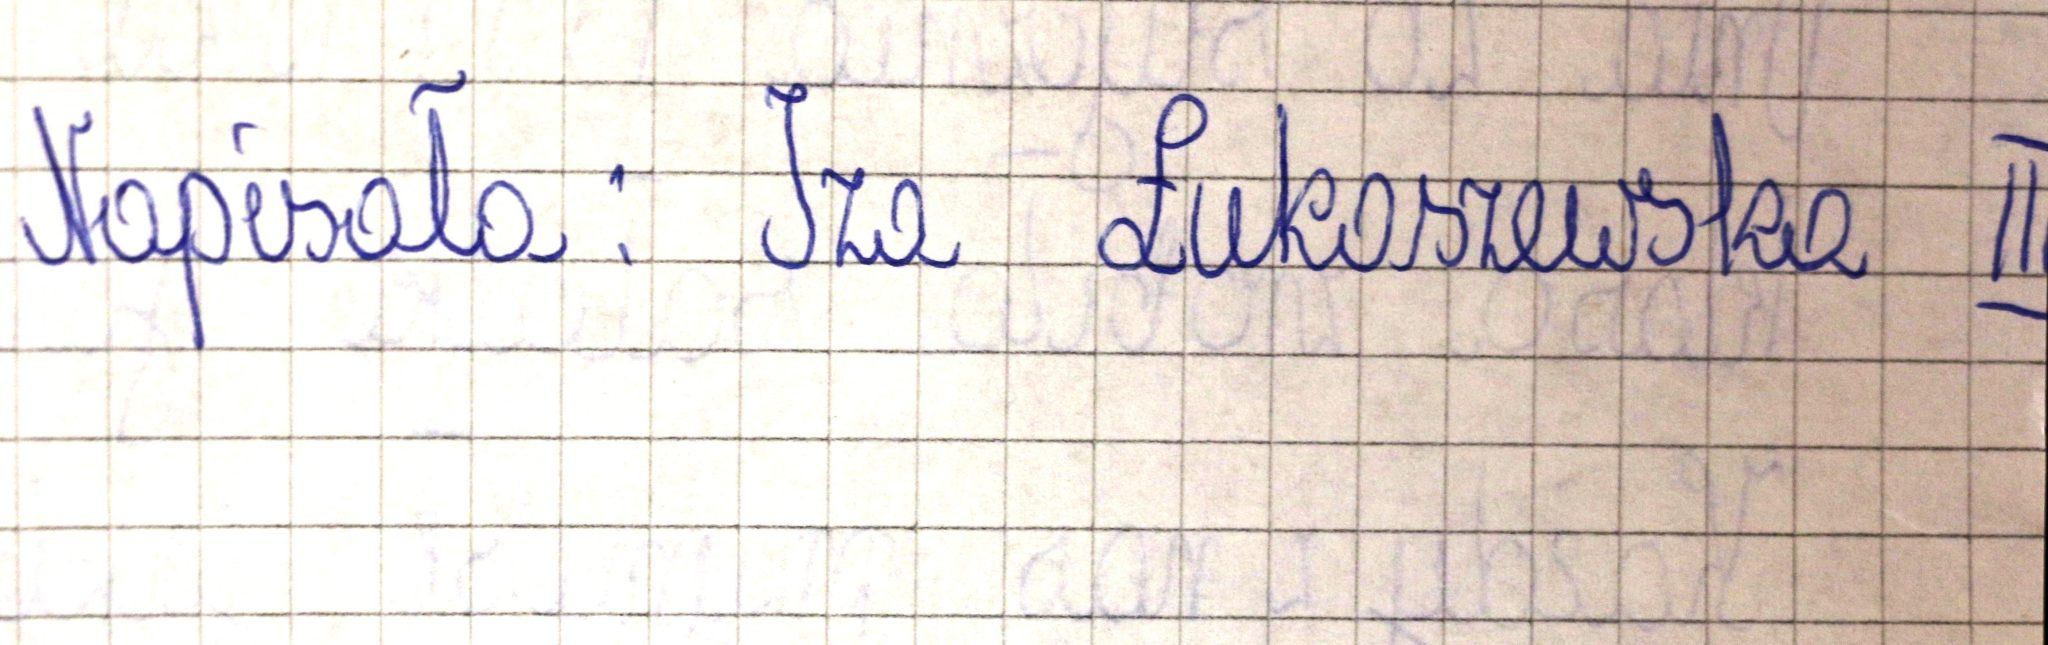 Napisała: Iza Łukaszewska III